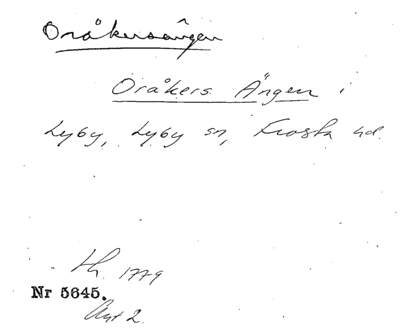 Oråkersängen
Oråkers Ängen i
Lyby, Lyby sn, Frosta hd.
Lh. 1779
Nr 5645.
Akt 2.